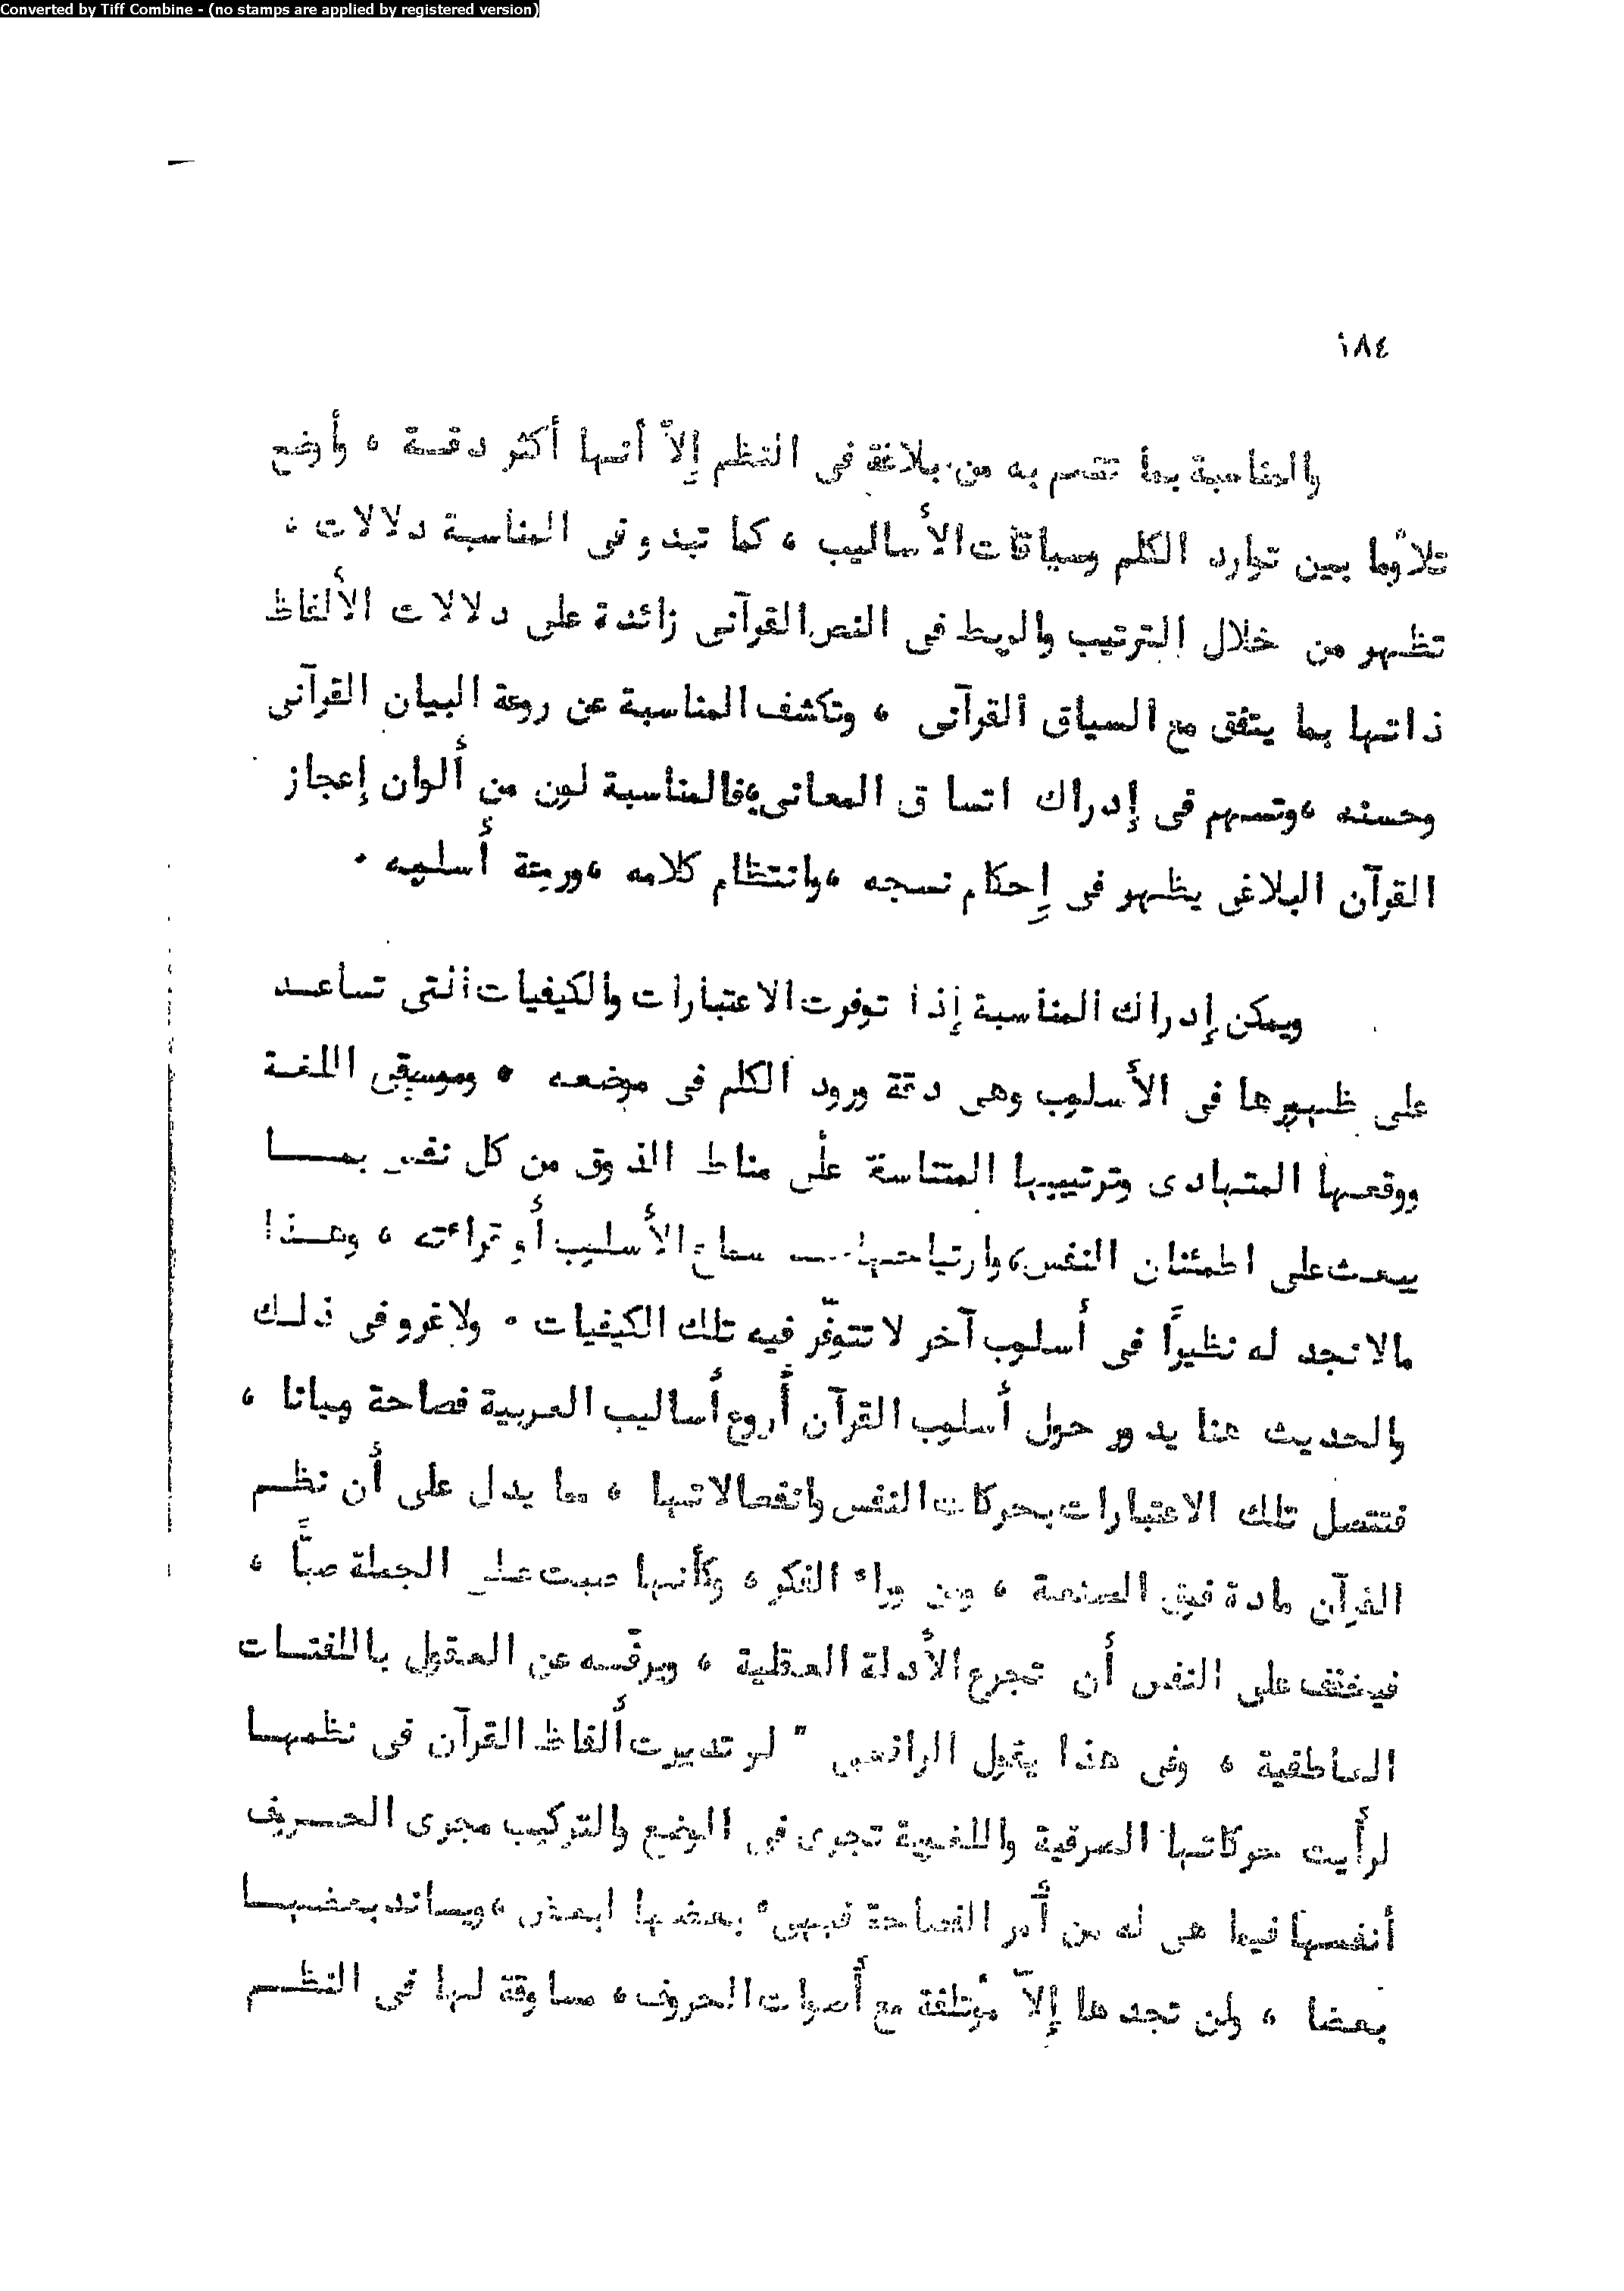 Converted by Tiff Combine - (no stamps are applied by registered version)
١٨٤
والمناسبة بما تتسم به من بلاغة فى النظم إِلاّ أنها أكثر دقة ، وأوضح
تلاؤما بين توارد الكلم وسياقات الأساليب ، كما تبدو فى المناسبة دلالات ،
تظهر من خلال الترتيب والربط فى النص القرآنى زائدة على دلالات الألفاظ
ذاتها بما يتفق مع السياق القرآنى ، وتكشف المناسبة عن روعة البيان القرآنى
وحسنه ،وتسهم فى إدراك اتساق المعانى،فالمناسبة لون من ألوان إعجاز
القرآن البلاغى يظهر فى إِحكام نسجه ،وانتظام كلامه ،وروعة أسلوبه ٠
ويمكن إدراك المناسبة إذا توفرت الاعتبارات والكيفيات التى تساعد
على ظهورها فى الأسلوب وهى دقة ورود الكلم فى موضعه ٠ وموسيقى اللغة
ووقعها المتهادى وترتيبها المتناسقة على مناط الذوق من كل نفس بما
يبعث على اطمئنان النفس،وارتياحها سماع الأسلوب أو قراءته ، وهذا
مالا تجد له نظيراً فى أسلوب آخر لا تتوفّر فيه تلك الكيفيات ٠ ولاغرو فى ذلك
والحديث هنا يدور حول أسلوب القرآن أروع أساليب العربية فصاحة وبيانا ،
فتتصل تلك الاعتبارات بحركات النفس وانفعالاتها ، مما يدل على أن نظم
القرآن مادة فوق الصنعة ، ومن وراء الفكر ، وكأنها صبت على الجملة صبًّا ،
فيخفف على النفس أن تجرع الأدلة العقلية ، ويرفّه عن العقول باللفتات
العاطفية ، وفى هذا يقول الرافعى " لو تدبرت ألفاظ القرآن فى نظمها
لرأيت حركاتها الصرفية واللغوية تجرى فى الوضع والتركيب مجرى الحروف
أنفسها فيما هى له من أمر الفصاحة فيهيىء بعضها لبعض ،ويساند بعضها
بعضا ، ولن تجدها إلاّ مؤتلفة مع أصوات الحروف ، مساوقة لها فى النظم